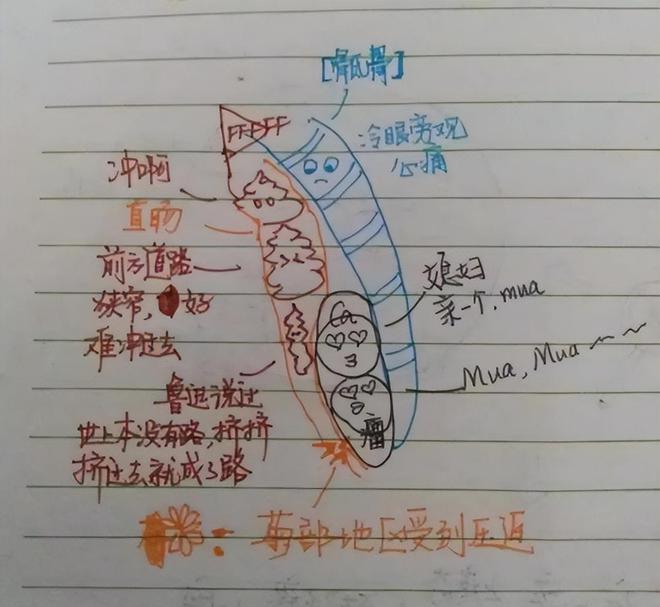 [骶骨]
FFDFF
冷眼旁观
心痛
冲啊
直肠
前方道路
狭窄，好
难冲过去
媳妇
亲一个，mua
Ca
Mua，Mua～～
瘤
鲁迅说过
世上本没有路，挤挤
挤过去就成了路
：菊部地区受到压迫